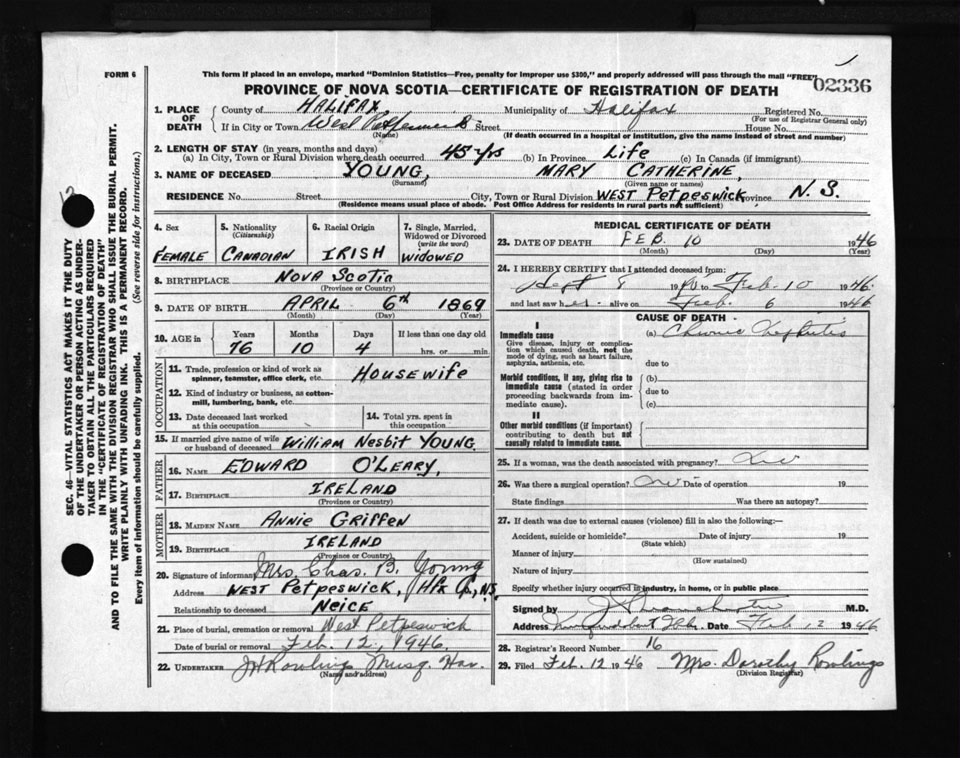 1
FORM 6
This form if placed in an envelope, marked "Dominion Statistics—Free, penalty for improper use $300," and properly addressed will pass through the mail "FREE"
02336
PROVINCE OF NOVA SCOTIA—CERTIFICATE OF REGISTRATION OF DEATH
1. PLACE OF DEATH
County of HALIFAX Municipality of Halifax Registered No.
(For use of Registrar General only)
If in City or Town West Street House No.
(Name) (If death occurred in a hospital or institution, give the name instead of street and number)
2. LENGTH OF STAY (in years, months and days)
(a) In City, Town or Rural Division where death occurred 45 yrs (b) In Province Life (c) In Canada (if immigrant)
3. NAME OF DECEASED YOUNG, MARY CATHERINE,
(Surname) (Given name or names)
RESIDENCE No. Street City, Town or Rural Division WEST PETPESWICK Province N.S.
(Residence means usual place of abode. Post Office Address for residents in rural parts not sufficient)
SEC. 46—VITAL STATISTICS ACT MAKES IT THE DUTY
OF THE UNDERTAKER OR PERSON ACTING AS UNDER-
TAKER TO OBTAIN ALL THE PARTICULARS REQUIRED
IN THE "CERTIFICATE OF REGISTRATION OF DEATH"
AND TO FILE THE SAME WITH THE DIVISION REGISTRAR WHO SHALL ISSUE THE BURIAL PERMIT.
WRITE PLAINLY WITH UNFADING INK. THIS IS A PERMANENT RECORD.
Every item of information should be carefully supplied. (See reverse side for instructions.)
4. Sex
FEMALE
5. Nationality
(Citizenship)
CANADIAN
6. Racial Origin
IRISH
7. Single, Married,
Widowed or Divorced
(write the word)
WIDOWED
8. BIRTHPLACE NOVA SCOTIA
(Province or Country)
9. DATE OF BIRTH APRIL 6th 1869
(Month) (Day) (Year)
10. AGE in Years Months Days If less than one day old
76 10 4 hrs. or min.
OCCUPATION
11. Trade, profession or kind of work as
spinner, teamster, office clerk, etc. HOUSEWIFE
12. Kind of industry or business, as cotton-
mill, lumbering, bank, etc.
13. Date deceased last worked
at this occupation
14. Total yrs. spent in
this occupation
15. If married give name of wife
or husband of deceased William Nesbit YOUNG
FATHER
16. NAME EDWARD O'LEARY,
17. BIRTHPLACE IRELAND
(Province or Country)
MOTHER
18. MAIDEN NAME ANNIE GRIFFEN
19. BIRTHPLACE IRELAND
(Province or Country)
20. Signature of informant Mrs. Chas. B. Young
Address WEST PETPESWICK, Hfx Co., N.S.
Relationship to deceased NEICE
21. Place of burial, cremation or removal West Petpeswick
Date of burial or removal Feb. 12, 1946
22. UNDERTAKER J H Rowlings Musq. Har.
(Name and address)
MEDICAL CERTIFICATE OF DEATH
23. DATE OF DEATH FEB. 10 1946
(Month) (Day) (Year)
24. I HEREBY CERTIFY that I attended deceased from:
Sept 8 to Feb. 10 1946
and last saw her alive on Feb. 6 1946
CAUSE OF DEATH
I
Immediate cause
Give disease, injury or complica-
tion which caused death, not the
mode of dying, such as heart failure,
asphyxia, asthenia, etc.
(a) Chronic Nephritis
due to
Morbid conditions, if any, giving rise to
immediate cause (stated in order
proceeding backwards from im-
mediate cause).
(b)
due to
(c)
II
Other morbid conditions (if important)
contributing to death but not
causally related to immediate cause.
25. If a woman, was the death associated with pregnancy? No
26. Was there a surgical operation? No Date of operation 19
State findings Was there an autopsy?
27. If death was due to external causes (violence) fill in also the following:—
Accident, suicide or homicide? Date of injury 19
(State which)
Manner of injury
(How sustained)
Nature of injury
Specify whether injury occurred in industry, in home, or in public place
Signed by M.D.
Address Date Feb 12 1946
28. Registrar's Record Number 16
29. Filed Feb. 12 1946 Mrs. Dorothy Rowlings
(Division Registrar)